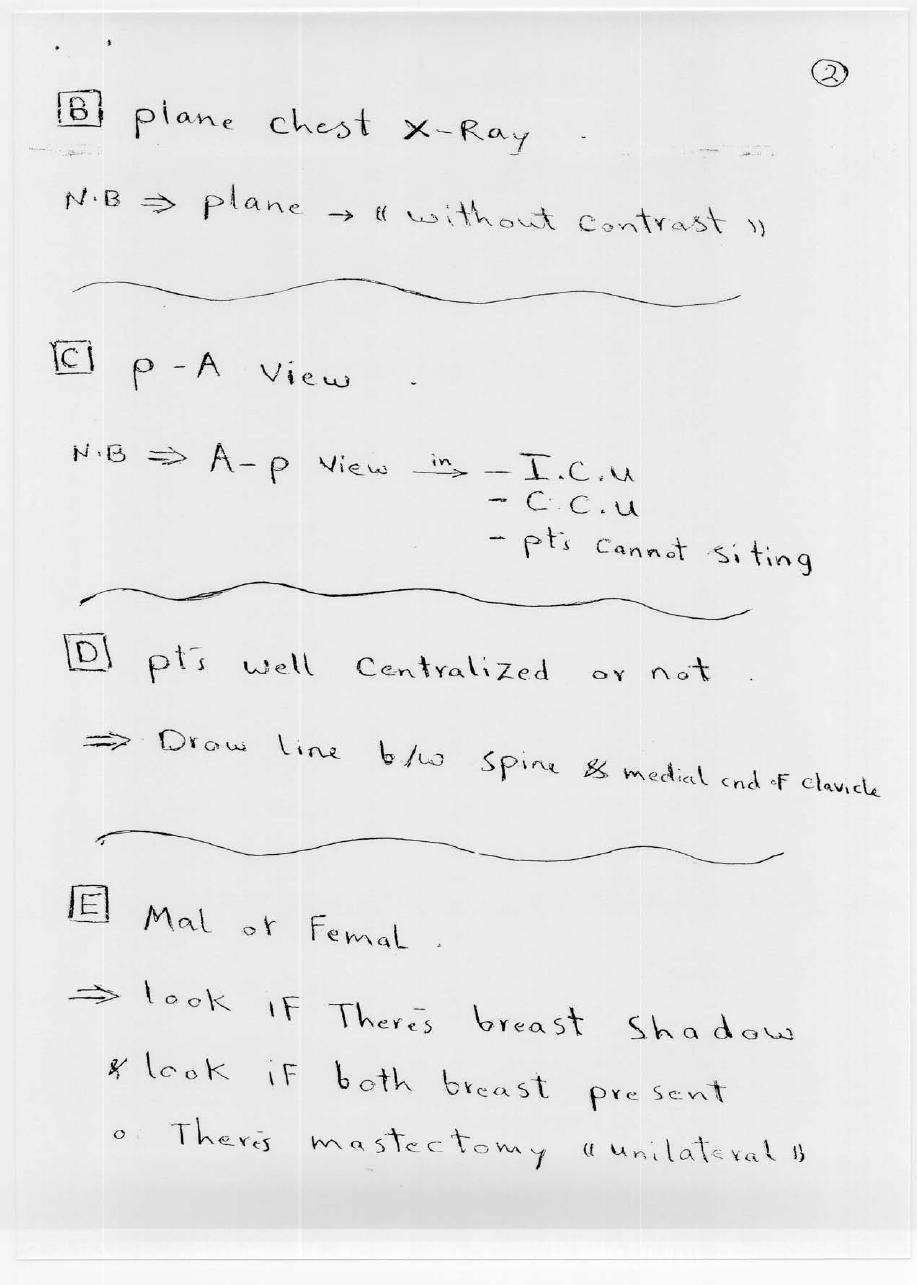 2
B plane chest X-Ray .
N.B ⇒ plane → (( without contrast ))
C P-A View .
N.B ⇒ A-P View in → - I.C.U
- C.C.U
- pt's cannot siting
D pt's well Centralized or not .
⇒ Draw line b/w spine & medial end of clavicle
E Mal or Femal .
⇒ look iF There's breast shadow
& look iF both breast present
o There's mastectomy (( unilateral ))